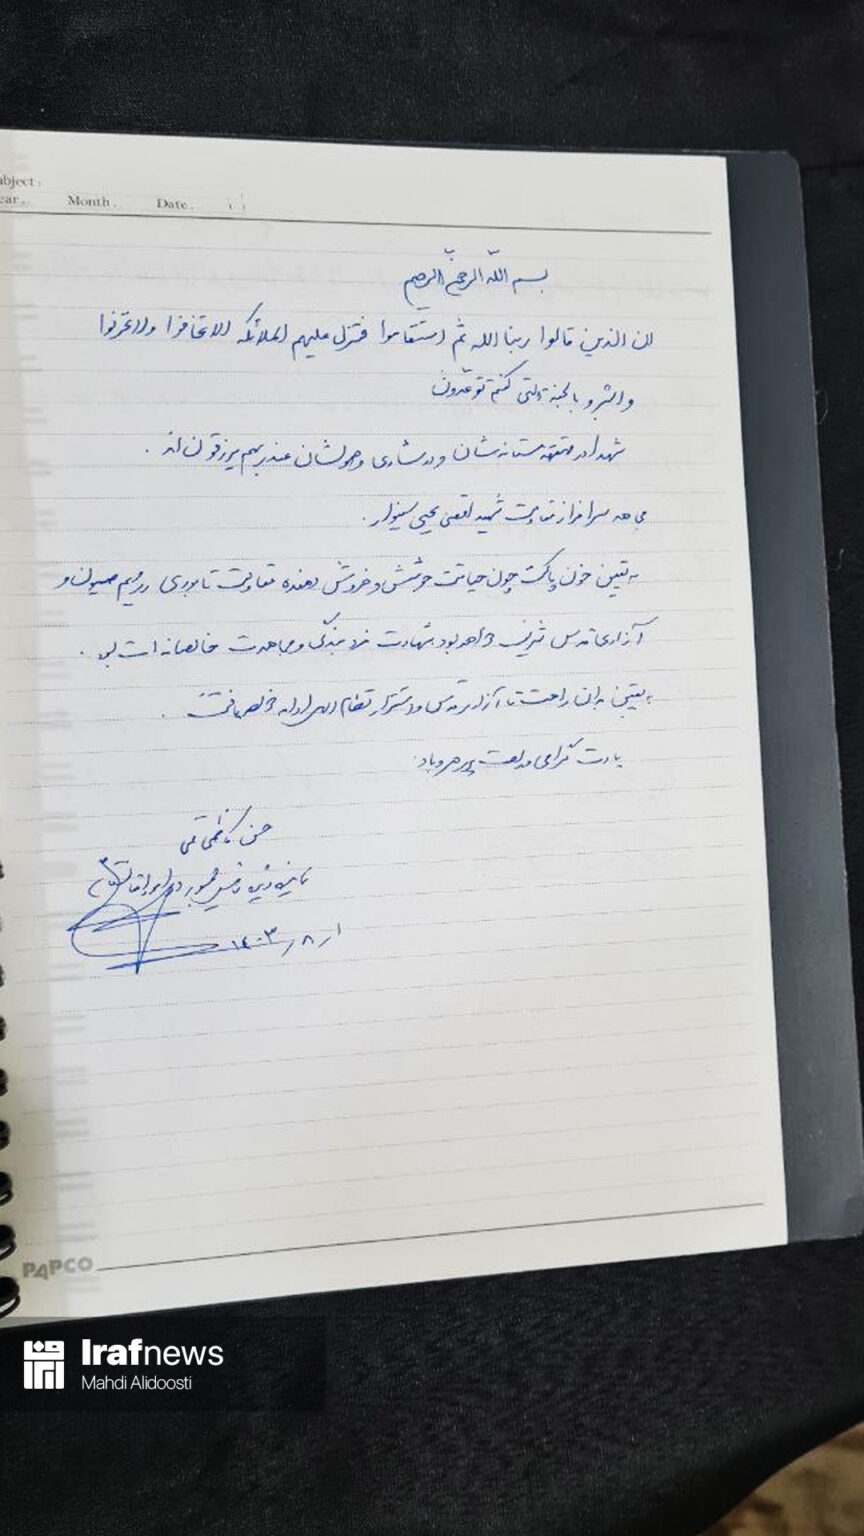 Subject :
Year . Month . Date . ( )
بسم الله الرحمن الرحیم
ان الذین قالوا ربنا الله ثم استقاموا تتنزل علیهم الملائکه الا تخافوا ولا تحزنوا
وابشروا بالجنة التی کنتم توعدون
شهدا در قهقهه مستانه‌شان و در شادی وصولشان عند ربهم یرزقون‌اند .
مجاهد سرافراز مقاومت شهید اقصی یحیی سنوار .
به یقین خون پاکت چون حیاتت جوشش و خروش دهنده مقاومت تا نابودی رژیم صهیون و
آزادی قدس شریف خواهد بود شهادت مزد بندگی و مجاهدت خالصانه ات بود .
به یقین بدان راهت تا آزادی قدس و استقرار نظام الهی ادامه خواهد یافت .
یادت گرامی و راهت پر رهرو باد .
حسن کاظمی قمی
نماینده ویژه رئیس جمهور در امور افغانستان
۱۴۰۳ / ۸ / ۱
PAPCO
Irafnews
Mahdi Alidoosti